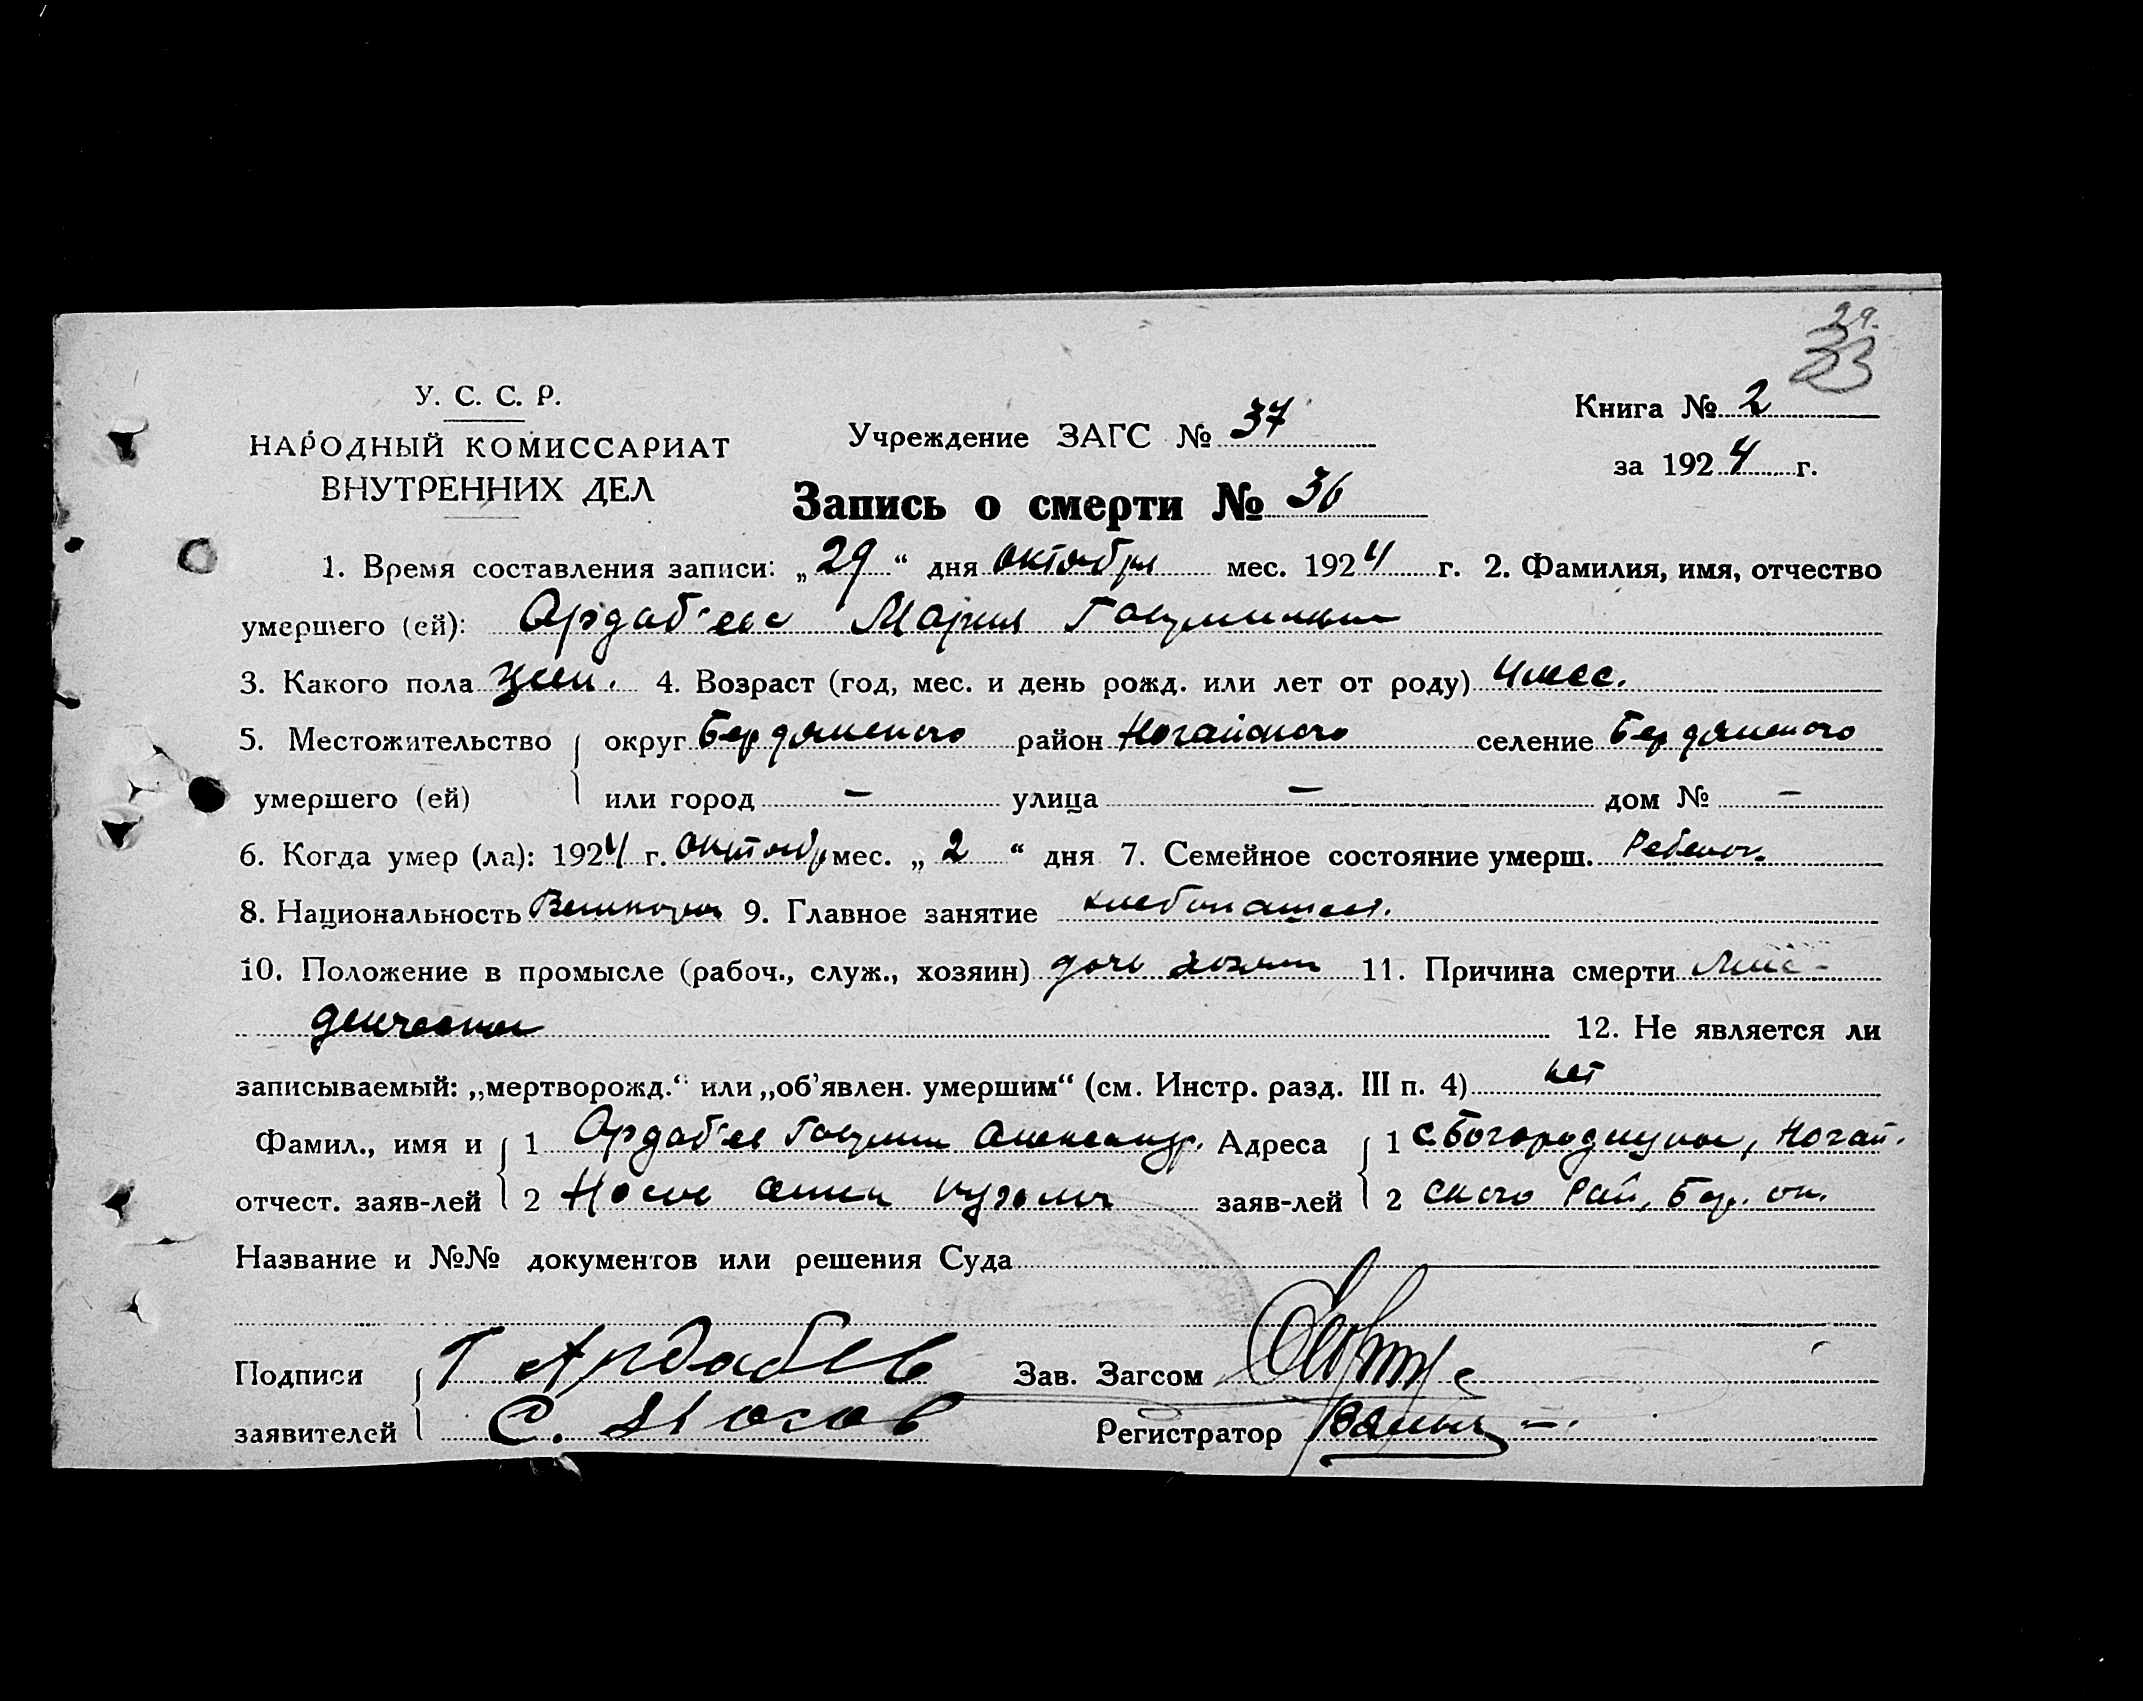 29.
33
У. С. С. Р.
НАРОДНЫЙ КОМИССАРИАТ
ВНУТРЕННИХ ДЕЛ
Учреждение ЗАГС № 37
Книга № 2
за 1924 г.
Запись о смерти № 36
1. Время составления записи: „29“ дня октября мес. 1924 г. 2. Фамилия, имя, отчество
умершего (ей): Ардаб'ева Мария
3. Какого пола жен. 4. Возраст (год, мес. и день рожд. или лет от роду) 4 мес.
5. Местожительство округ Бердянского район Ногайского селение Бердянского
умершего (ей) или город — улица — дом № —
6. Когда умер (ла): 1924 г. октябр мес. „2“ дня 7. Семейное состояние умерш. Ребенок.
8. Национальность 9. Главное занятие хлебопашест.
10. Положение в промысле (рабоч., служ., хозяин) дочь хозяин 11. Причина смерти
денческая 12. Не является ли
записываемый: „мертворожд.“ или „об'явлен. умершим“ (см. Инстр. разд. III п. 4) нет
Фамил., имя и 1 Ардаб'ев Александр. Адреса 1 с. Ногай.
отчест. заяв-лей 2 Носов заяв-лей 2 ского Рай, Бер. ок.
Название и №№ документов или решения Суда
Подписи Г Ардабев Зав. Загсом
заявителей С. Носов Регистратор